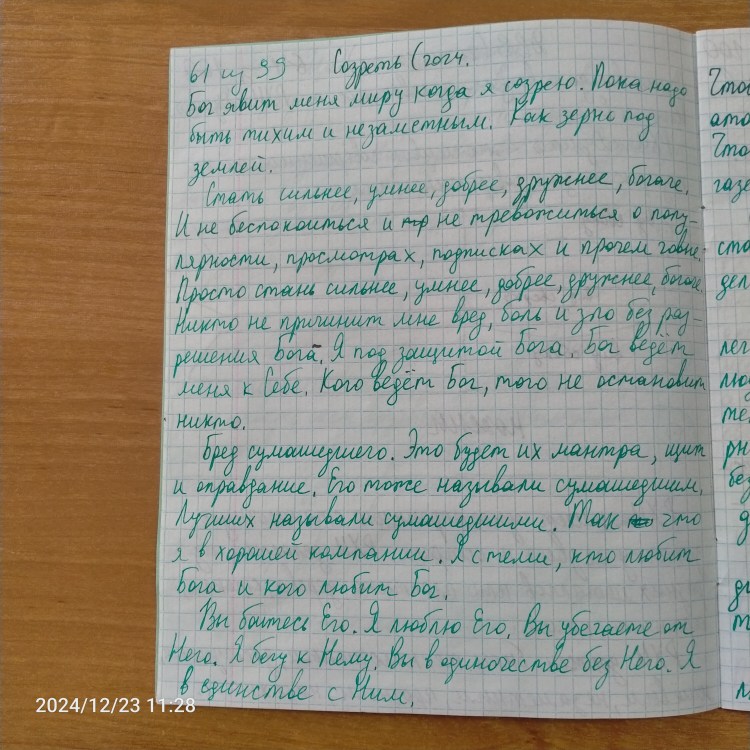 61 из 99 Созреть (2024.
Бог явит меня миру когда я созрею. Пока надо
быть тихим и незаметным. Как зерно под
землей.
Стать сильнее, умнее, добрее, дружнее, богаче.
И не беспокоиться и не тревожиться о попу-
лярности, просмотрах, подписках и прочем говне.
Просто стань сильнее, умнее, добрее, дружнее, богаче.
Никто не причинит мне вред, боль и зло без раз-
решения Бога. Я под защитой Бога. Бог ведёт
меня к Себе. Кого ведёт Бог, того не остановит
никто.
Бред сумашедшего. Это будет их мантра, щит
и оправдание. Его тоже называли сумашедшим.
Лучших называли сумашедшими. Так что
я в хорошей компании. Я с теми, кто любит
Бога и кого любит Бог.
Вы боитесь Его. Я люблю Его. Вы убегаете от
Него. Я бегу к Нему. Вы в одиночестве без Него. Я
в единстве с Ним.
2024/12/23 11:28